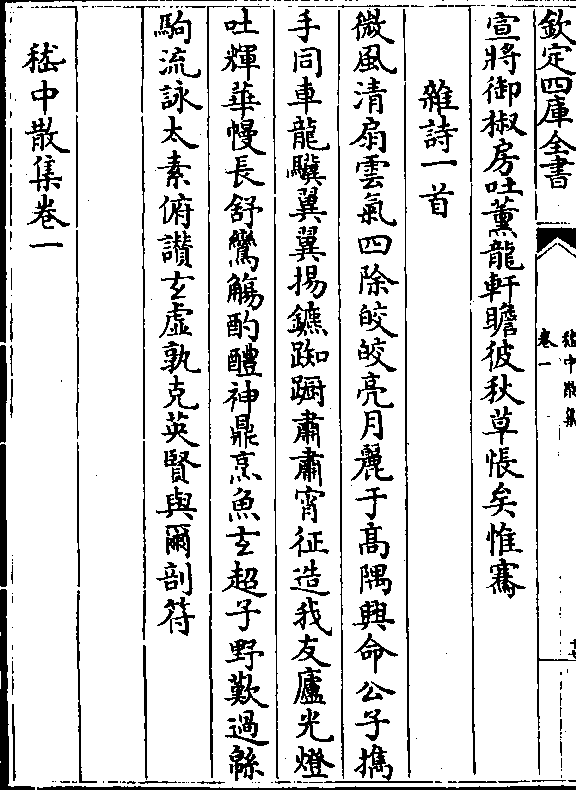 欽定四庫全書
嵇中散集
卷一
宣將御椒房吐薰龍軒瞻彼秋草悵矣惟騫
雜詩一首
微風清扇雲氣四除皎皎亮月麗于髙隅興命公子擕
手同車龍驥翼翼揚鑣踟蹰肅肅宵征造我友廬光燈
吐輝華幔長舒鸞觴酌醴神鼎烹魚𤣥超子野歎過緜
駒流詠太素俯讃𤣥虚孰克英賢與爾剖符
嵇中散集卷一